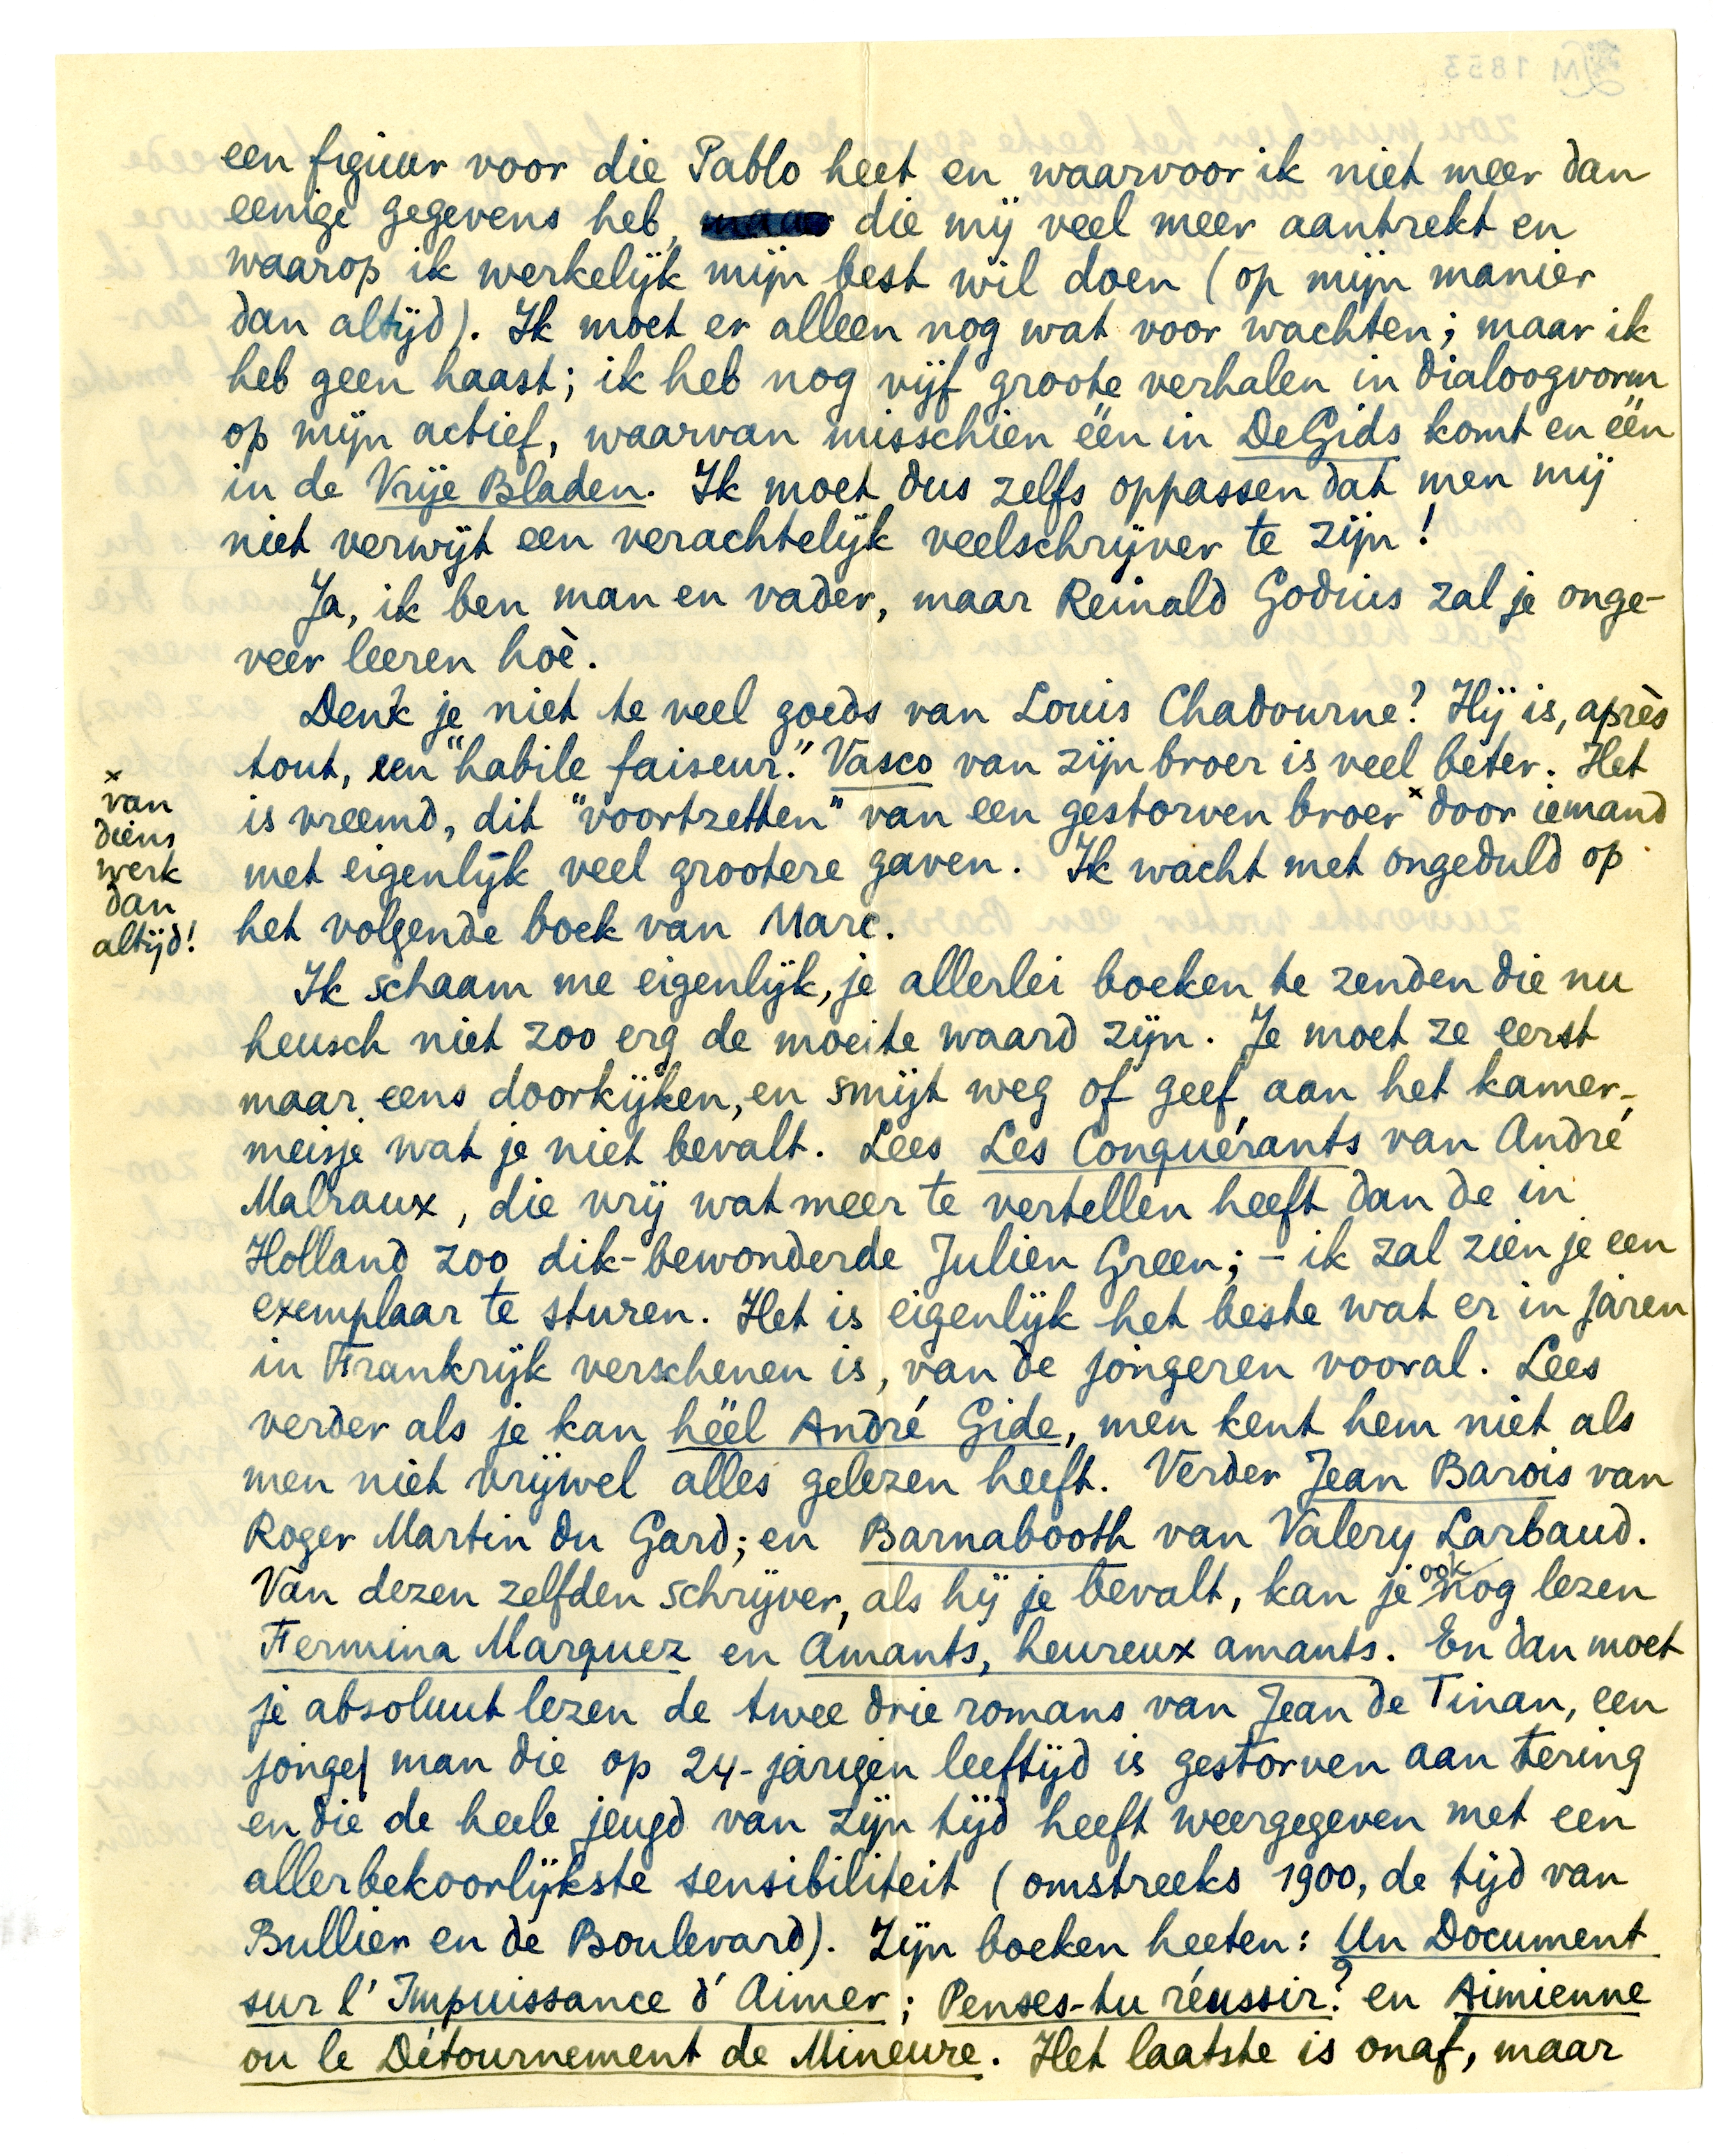 een figuur voor die Pablo heet en waarvoor ik niet meer dan
eenige gegevens heb, maar die mij veel meer aantrekt en
waarop ik werkelijk mijn best wil doen (op mijn manier
dan altijd). Ik moet er alleen nog wat voor wachten; maar ik
heb geen haast; ik heb nog vijf groote verhalen in dialoogvorm
op mijn actief, waarvan misschien één in De Gids komt en één
in de Vrije Bladen. Ik moet dus zelfs oppassen dat men mij
niet verwijt een verachtelijk veelschrijver te zijn!
Ja, ik ben man en vader, maar Reinald Godius zal je onge-
veer leeren hoè.
Denk je niet te veel goeds van Louis Chadourne? Hij is, après
tout, een "habile faiseur." Vasco van zijn broer is veel beter. Het
is vreemd, dit "voortzetten" van een gestorven broer × door iemand
met eigenlijk veel grootere gaven. Ik wacht met ongeduld op
het volgende boek van Marc.
× van
diens
werk
dan
altijd!
Ik schaam me eigenlijk, je allerlei boeken te zenden die nu
heusch niet zoo erg de moeite waard zijn. Je moet ze eerst
maar eens doorkijken, en smijt weg of geef aan het kamer-
meisje wat je niet bevalt. Lees Les Conquérants van André
Malraux, die vrij wat meer te vertellen heeft dan de in
Holland zoo dik-bewonderde Julien Green; – ik zal zien je een
exemplaar te sturen. Het is eigenlijk het beste wat er in jaren
in Frankrijk verschenen is, van de jongeren vooral. Lees
verder als je kan héél André Gide, men kent hem niet als
men niet vrijwel alles gelezen heeft. Verder Jean Barois van
Roger Martin du Gard; en Barnabooth van Valery Larbaud.
Van dezen zelfden schrijver, als hij je bevalt, kan je ook nog lezen
Fermina Marquez en Amants, heureux amants. En dan moet
je absoluut lezen de twee drie romans van Jean de Tinan, een
jonge man die op 24-jarigen leeftijd is gestorven aan tering
en die de heele jeugd van zijn tijd heeft weergegeven met een
allerbekoorlijkste sensibiliteit (omstreeks 1900, de tijd van
Bullier en de Boulevard). Zijn boeken heeten: Un Document
sur l'Impuissance d'Aimer; Penses-tu réussir? en Aimienne
ou le Détournement de Mineure. Het laatste is onaf, maar